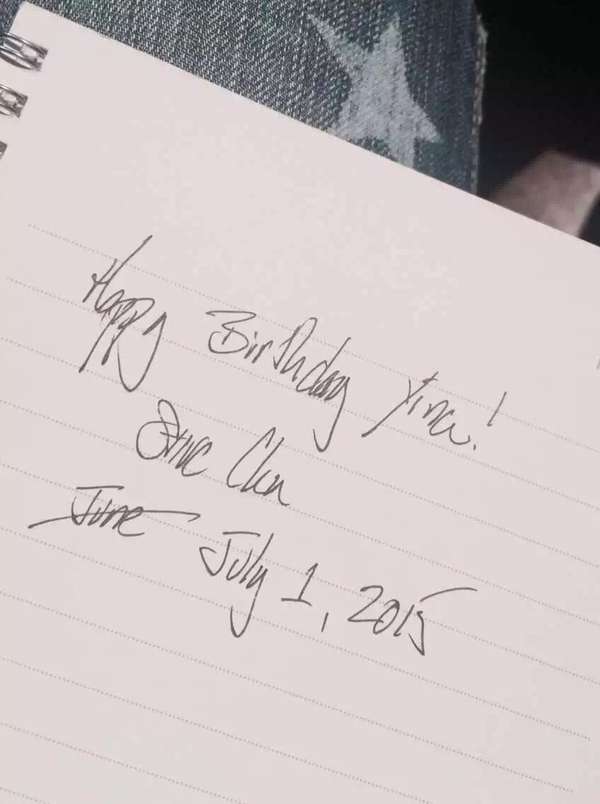 Happy Birthday Yina!
Steve Chen
June July 1, 2015